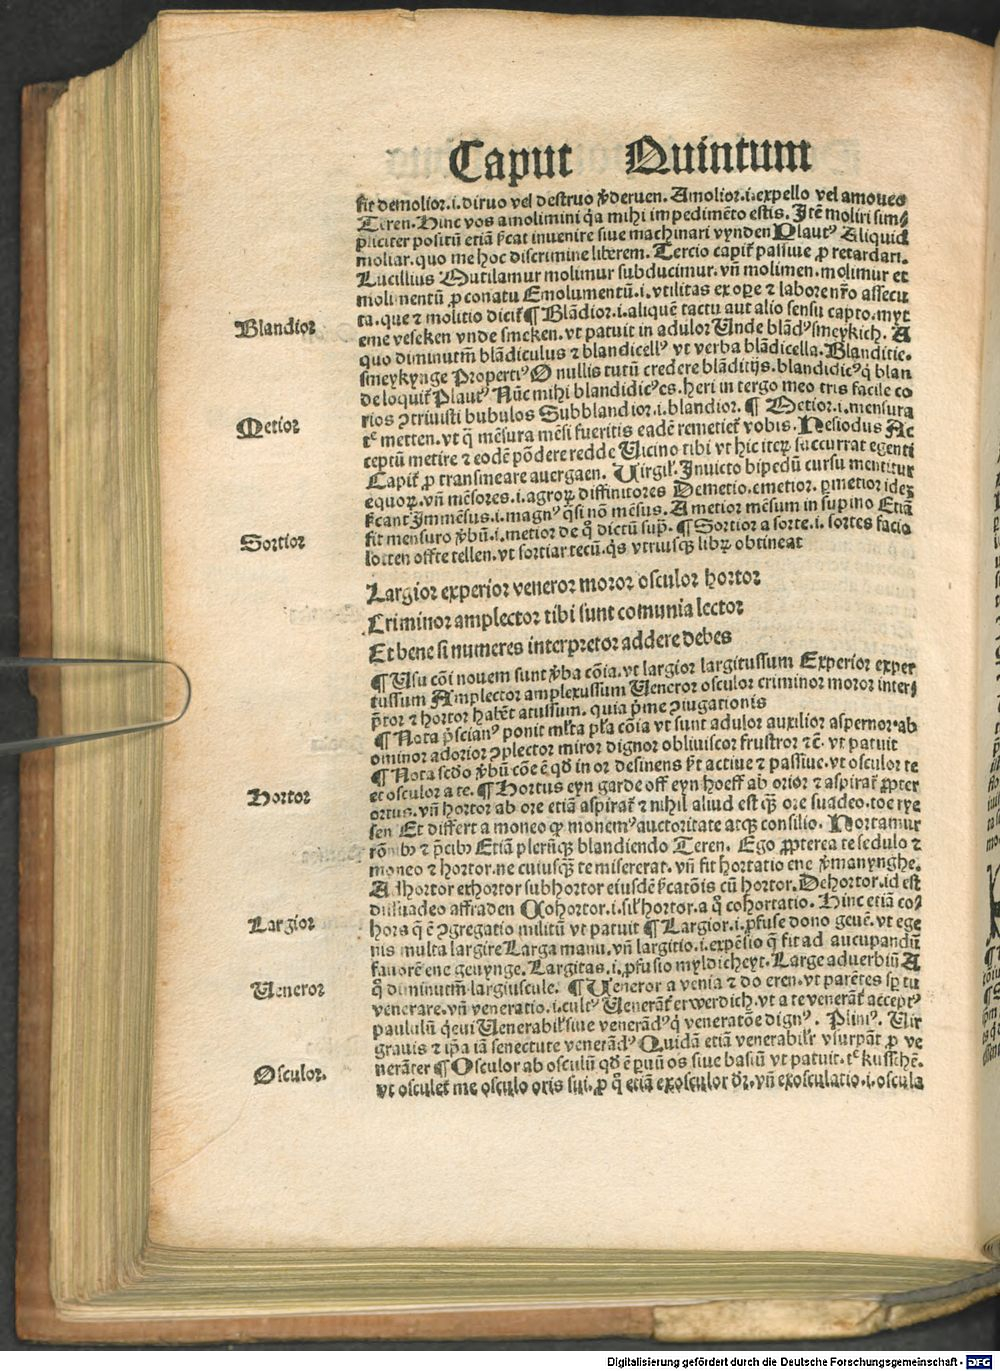 Caput Quintum
fit demolior.i.diruo vel destruo ꝟderuen. Amolior.i.expello vel amoueo
Teren. Hinc vos amolimini qͥa mihi impedimēto estis. Jtē moliri sim⸗
pliciter positū etiā sͥcat inuenire siue machinari vynden Plautꝰ Aliquid
moliar.quo me hoc discrimine liberem. Tercio capitͬ passiue ꝓ retardari.
Lucillius Mutilamur molimur subducimur.vn̄ molimen.molimur et
molimentū ꝓ conatu Emolumentū.i.vtilitas ex oꝑe ⁊ labore nr̄o assecu
ta.que ⁊ molitio dicitͬ ¶ Blādior.i.aliquē tactu aut alio sensu capto.myt
Blandior
eme veseken vnde smeken.vt patuit in adulor Unde blādꝰ smeykich. A
quo diminutm̄ blādiculus ⁊ blandicellꝰ vt verba blādicella. Blanditie.
smeykynge Propertiꝰ O nullis tutū credere blāditijs.blandidicꝰ q̄ blan
de loquitͬ Plautꝰ Nūc mihi blandidicꝰ es.heri in tergo meo tris facile co
rios ꝯtriuisti bubulos Subblandior.i.blandior. ¶ Metior.i.mensura
Metior
te metten.vt q̄ mēsura mēsi fueritis eadē remetietͬ vobis. Hesiodus Ac
ceptū metire ⁊ eodē pōdere redde Uicino tibi vt hic iteꝝ succurrat egenti
Capitͬ ꝓ transmeare auergaen. Uirgilͥ. Jnuicto bipedū cursu mentitur
equoꝝ.vn̄ mēsores.i.agroꝝ diffinitores Demetio.emetior.ꝑmetior ideꝫ
sͥcant Jmmēsus.i.magnꝰ qͣsi nō mēsus. Ametior mēsum in supino Etiā
fit mensuro ꝟbū.i.metior de qͦ dictū supͣ. ¶ Sortior a sorte.i.sortes facio
Sortior
lotten offte tellen.vt sortiar tecū.qͥs vtriusqꝫ libꝝ obtineat
Largior experior veneror moror osculor hortor
Criminor amplector tibi sunt comunia lector
Et bene si numeres interpretor addere debes
¶ Usu cōi nouem sunt ꝟba cōia.vt largior largitussum Experior exper
tussum Amplector amplexussum Ueneror osculor criminor moror inter⸗
p̄tor ⁊ hortor habēt atussum.quia pͥme ꝯiugationis
¶ Nota pͥscianꝰ ponit ml̄ta pl̄a cōia vt sunt adulor auxilior aspernor.ab
ominor adorior ꝯplector miror dignor obliuiscor frustror ⁊c̄. vt patuit
¶ Nota scd̄o ꝟbū cōe ē qd̄ in or desinens sͥt actiue ⁊ passiue.vt osculor te
et osculor a te. ¶ Hortus eyn garde off eyn hoeff ab orior ⁊ aspiratͬ ꝓpter
Hortor
ortus.vn̄ hortor ab ore etiā aspiratͬ ⁊ nihil aliud est qꝫ ore suadeo.toe rye
sen Et differt a moneo qꝫ monemꝰ auctoritate atqꝫ consilio. Hortamur
rōnibꝰ ⁊ p̄cibꝰ Etiā plerūqꝫ blandiendo Teren. Ego ꝓpterea te sedulo ⁊
moneo ⁊ hortor.ne cuiusqꝫ te misererat.vn̄ fit hortatio ene ꝟmanynghe.
Adhortor exhortor subhortor eiusdē sͥcatōis cū hortor. Dehortor.id est
dissuadeo affraden Cohortor.i.silͥ hortor.a qͦ cohortatio. Hinc etiā co⸗
hors q̄ ē ꝯgregatio militū vt patuit ¶ Largior.i.ꝓfuse dono geuē.vt ege
Largior
nis multa largire Larga manu.vn̄ largitio.i.expēsio q̄ fit ad aucupandū
fauorē ene geuynge. Largitas.i.ꝓfusio myldicheyt. Large aduerbiū A
qͦ diminutm̄ largiuscule. ¶ Ueneror a venia ⁊ do eren.vt parētes sp̄ tu
Ueneror
venerare.vn̄ veneratio.i.cultꝰ Ueneratͬ erwerdich.vt a te veneratͬ acceptꝰ
paululū quieui Uenerabilͥ siue venerādꝰ q̄ veneratōe dignꝰ. Pliniꝰ. Uir
grauis ⁊ ip̄a iā senectute venerādꝰ Quidā etiā venerabilͥr vsurpāt ꝓ ve
neranter ¶ Osculor ab osculū qd̄ ē ꝑuū os siue basiū vt patuit.te kusschē.
Osculor.
vt osculetͬ me osculo oris sui.ꝓ qͦ etiā exosculor dr̄.vn̄ exosculatio.i.oscula
Digitalisierung gefördert durch die Deutsche Forschungsgemeinschaft - DFG